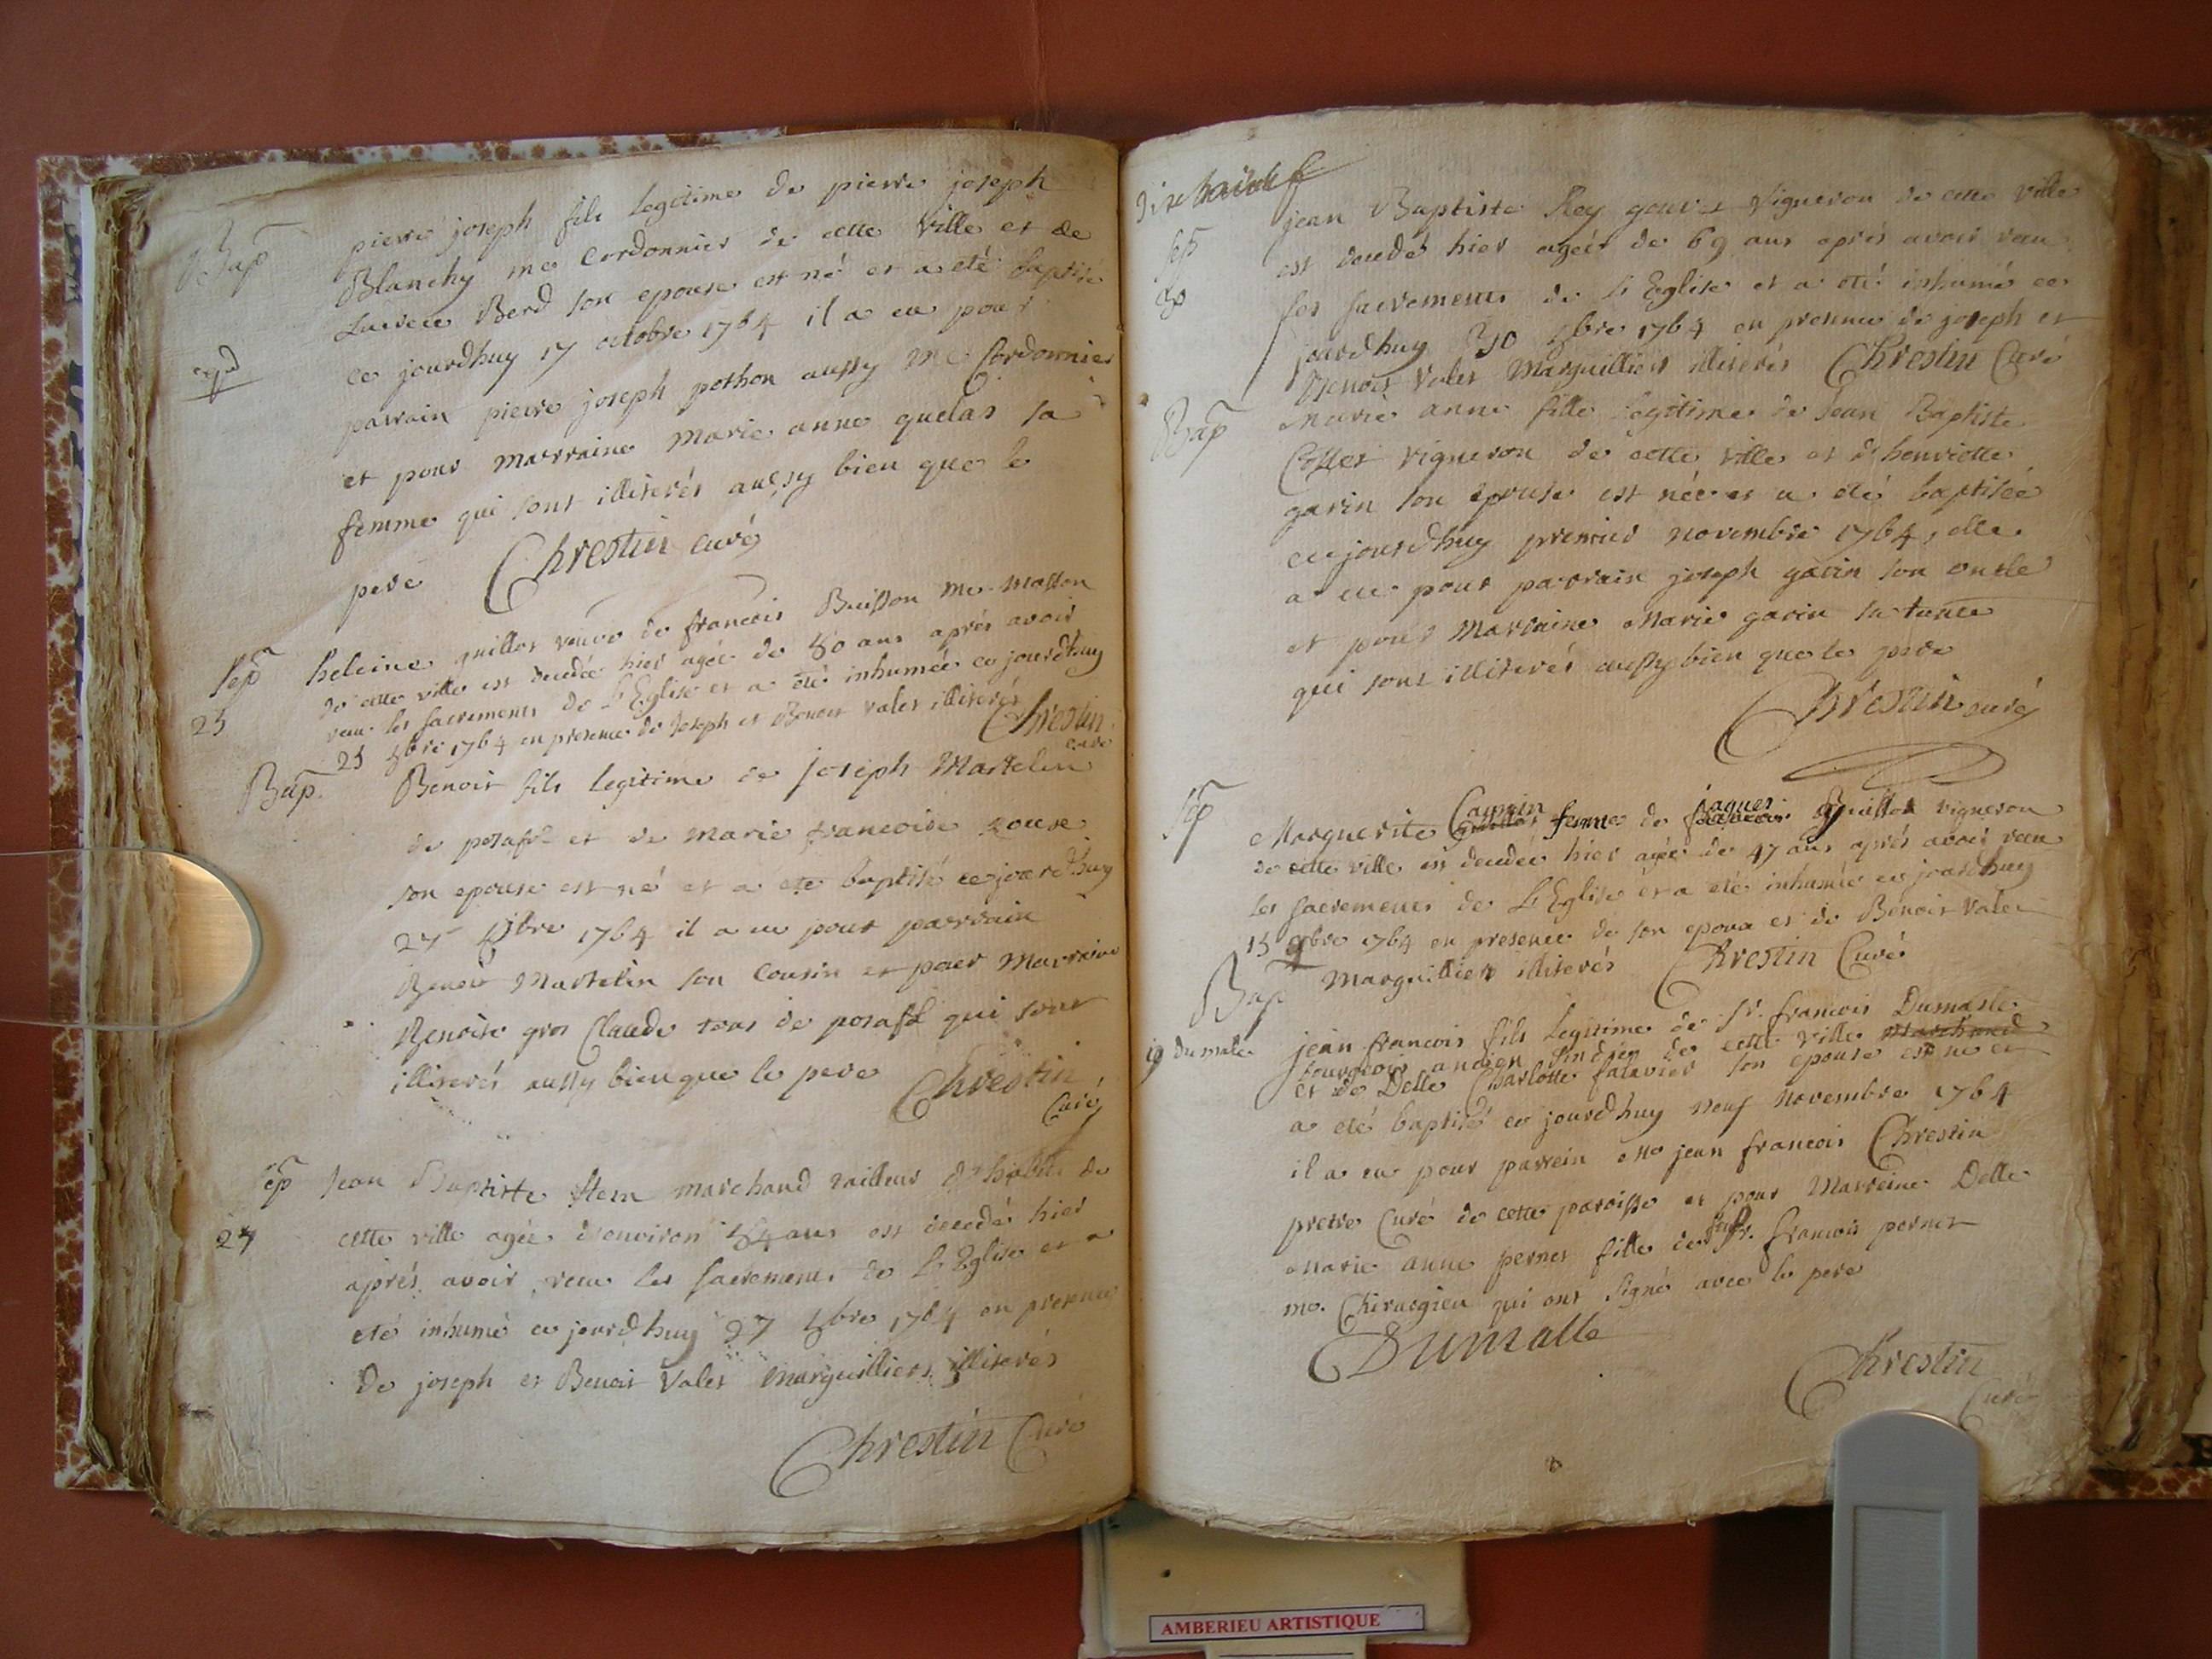 Bap
pierre joseph fils legitime de pierre joseph
Blanchy me Cordonnier de cette ville et de
Berd son epouse est né et a eté baptisé
ce jourdhuy 17 octobre 1764 il a eu pour
parrain pierre joseph pothon aussy me Cordonnier
et pour marraine marie anne quelas sa
femme qui sont illiterés aussy bien que le
pere Chrestin curé
Sep
25
heleine guillot veuve de francois Buisson me masson
de cette ville est decedée hier agée de 80 ans aprés avoir
receu les sacremens de L'Eglise et a eté inhumée ce jourdhuy
25 8bre 1764 en presence de Joseph et Benoit valet illiterés
Chrestin
curé
Bap.
Benoit fils legitime de joseph Martelin
de posafol et de marie francoise
son epouse est né et a eté baptisé ce jourdhuy
27 8bre 1764 il a eu pour parrain
Benoit Martelin son Cousin et pour Marraine
Benoite gros Claude tous de posafol qui sont
illiterés aussy bien que le pere Chrestin
Curé
Sep
27
Jean Baptiste marchand tailleur d'habits de
cette ville agée d'environ 54 ans est decedé hier
aprés avoir receu les sacremens de L'Eglise et a
eté inhumé ce jourdhuy 27 8bre 1764 en presence
de joseph et Benoit Valet Marguilliers illiterés
Chrestin Curé
Sep
30
jean Baptiste Rey vigneron de cette ville
est decedé hier ageér de 69 ans aprés avoir receu
les sacrements de L'Eglise et a eté inhumé ce
jourdhuy 30 8bre 1764 en presence de joseph et
Benoit Valet Marguilliers illiterés Chrestin Curé
Bap
Marie anne fille legitime de Jean Baptiste
Collet vigneron de cette ville et d'henriette
garin son epouse est née et a eté baptisée
ce jourdhuy premier novembre 1764, elle
a eu pour parrain joseph garin son oncle
et pour Marraine Marie garin sa tante
qui sont illiterés aussy bien que le pere
Chrestin curé
Sep
Marguerite femme de jaques guillot vigneron
de cette ville est decedée hier agée de 47 ans aprés avoir receu
les sacremens de L'Eglise et a eté inhumée ce jourdhuy
15 9bre 1764 en presence de son epoux et de Benoit Valet
Marguillier illiterés Chrestin Curé
Bap
19 Dumale
jean francois fils Legitime de Sr. francois Dumaslle
bourgeois ancien sindic de cette ville marchand
et de Delle Charlotte falavier son epouse est né et
a eté baptisé ce jourdhuy neuf Novembre 1764
il a eu pour parrein Me jean francois Chrestin
pretre Curé de cette paroisse et pour Marreine Delle
Marie anne pernet fille de feu Sr. francois pernet
me. Chirurgien qui ont signé avec le pere
Dumalle
Chrestin
Curé
AMBERIEU ARTISTIQUE